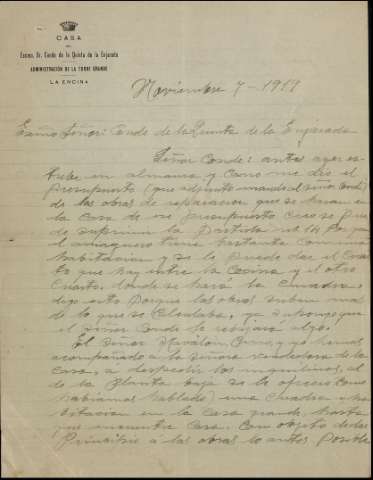 CASA
DEL
Excmo. Sr. Conde de la Quinta de la Enjarada
ADMINISTRACIÓN DE LA TORRE GRANDE
LA ENCINA
Noviembre 7-1919
Exmo Señor: Conde de la Quinta de la Enjarada
Señor Conde: antes ayer es-
tube en almansa y Cano me dio el
presupuesto (que adjunto mando al señor Conde)
de las obras de reparacion que se hacen en
la Casa de ese presupuesto creo se pue-
de suprimir la Partida nº 14 Por que
el tiene bastante con una
habitacion y se le puede dar el Cuar-
to que hay entre la Cocina y el otro
Cuarto, donde se hará la Cuadra,
digo esto porque las obras suben mas
de lo que se Calculaba, ya supongo que
el Señor Conde le rebajará algo.
El Señor Cano, y yo hemos
acompañado á la Señora vendedora de la
Casa, á despedir los inquilinos, al
de la Planta baja se le ofrecio (como
habiamos hablado) una Cuadra y ha-
bitacion en la Casa grande, hasta
que encuentre Casa, Con objeto de dar
Principio á las obras lo antes posible